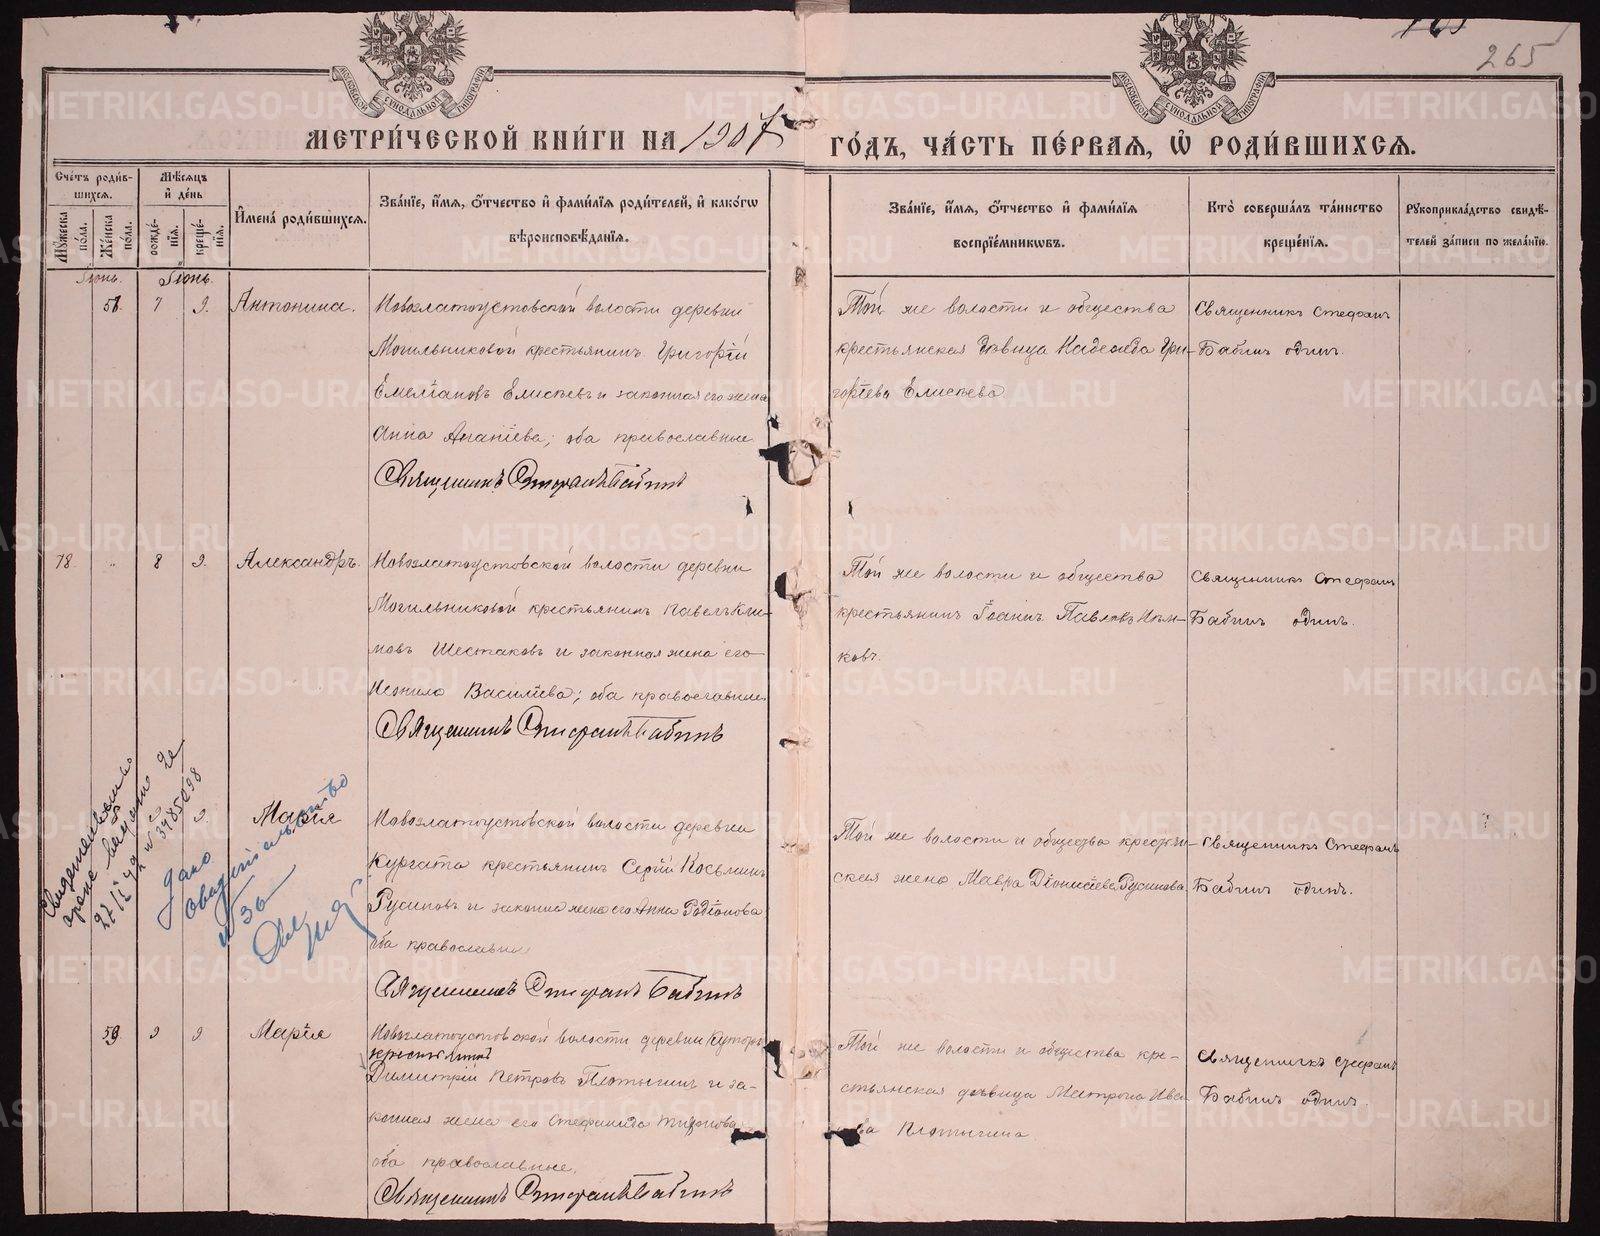 265
МОСКОВСКОЙ СѴНОДАЛЬНОЙ ТИПОГРАФІИ
МОСКОВСКОЙ СѴНОДАЛЬНОЙ ТИПОГРАФІИ
МЕТРИ́ЧЕСКОЙ КНИ́ГИ НА 1907 ГО́ДЪ, ЧА́СТЬ ПЕ́РВАЯ, Ѡ҆ РОДИ́ВШИХСЯ.
Сче́тъ роди́вшихся.
Мѣ́сяцъ и҆ де́нь
Му́жеска по́ла.
Же́нска по́ла.
рожде́нїя.
креще́нїя.
И҆мена̀ роди́вшихся.
Зва́нїе, и҆́мя, ѻ҆́тчество и҆ фами́лїя роди́телей, и҆ како́гѡ
вѣроисповѣ́данїя.
Зва́нїе, и҆́мя, ѻ҆́тчество и҆ фами́лїя
воспрїе́мниковъ.
Кто̀ соверша́лъ та́инство
креще́нїя.
Рукоприкла́дство свидѣ́-
телей за́писи по жела́нїю.
Іюнь. Іюнь.
58. 7 9. Антонина.
Новозлатоустовской волости деревни
Могильниковой крестьянинъ Григорій
Емеліановъ Елисѣевъ и законная его жена
Анна Ананіева; оба православные
Священникъ Стефанъ Бабинъ
Той же волости и общества
крестьянская дѣвица Надежда Гри-
горіева Елисѣева
Священникъ Стефанъ
Бабинъ одинъ.
78. " 8 9. Александръ.
Новозлатоустовской волости деревни
Могильниковой крестьянинъ Павелъ Кли-
мовъ Шестаковъ и законная жена его
Неонила Василіева; оба православные
Священникъ Стефанъ Бабинъ
Той же волости и общества
крестьянинъ Іоаннъ Павловъ
ковъ.
Священникъ Стефанъ
Бабинъ одинъ.
Свидетельство
27/II 49
дано
свидѣтельство
№ 36
Марія
Новозлатоустовской волости деревни
Кургата крестьянинъ Сергій Косминъ
Русиновъ и законная жена его Анна Родіонова
оба православные
Священникъ Стефанъ Бабинъ
Той же волости и общества крестьян-
ская жена Мавра Діонисіева Русинова
Священникъ Стефанъ
Бабинъ одинъ.
59 9 9 Марія
Новозлатоустовской волости деревни
крестьянинъ
Димитрій Петровъ Плотыгинъ и за-
конная жена его Стефанида
оба православные.
Священникъ Стефанъ Бабинъ
Той же волости и общества кре-
стьянская дѣвица Матрона Ива-
ва Плотыгина
Священникъ Стефанъ
Бабинъ одинъ.
METRIKI.GASO-URAL.RU